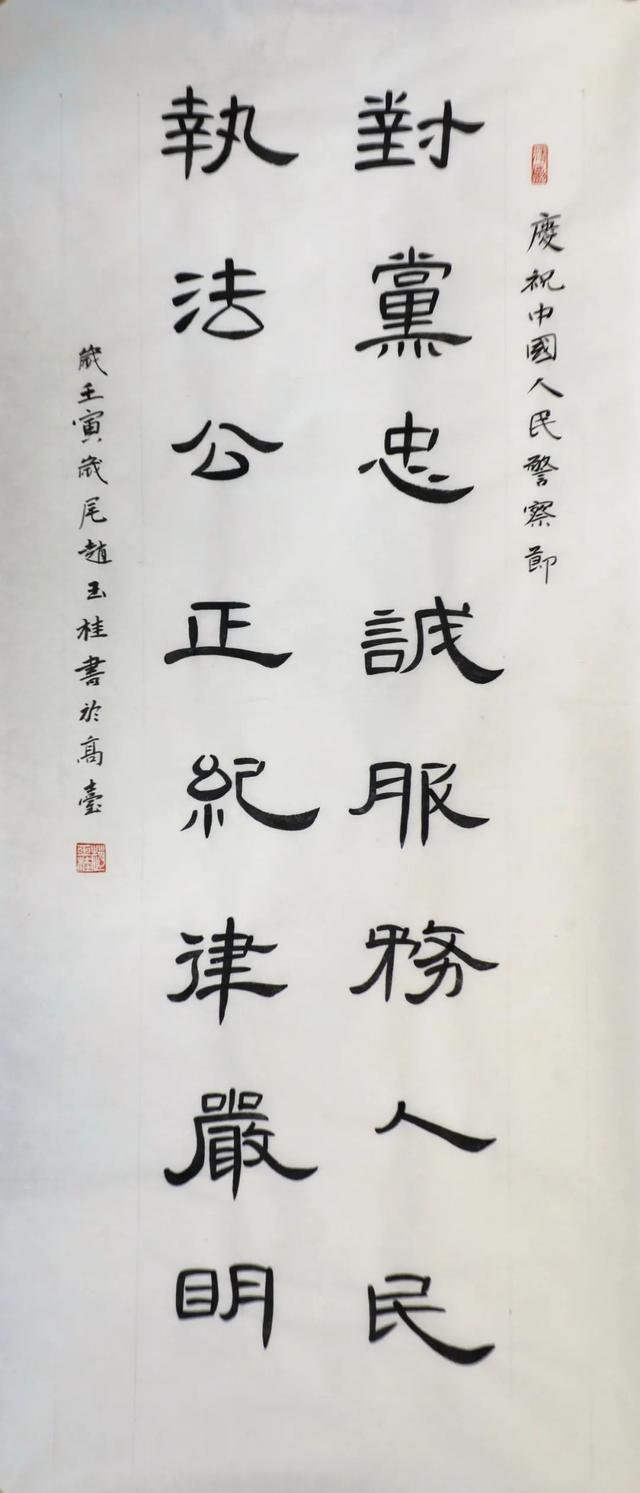 慶祝中國人民警察節
對黨忠誠服務人民
執法公正紀律嚴明
歲壬寅歲尾趙玉桂書於高臺